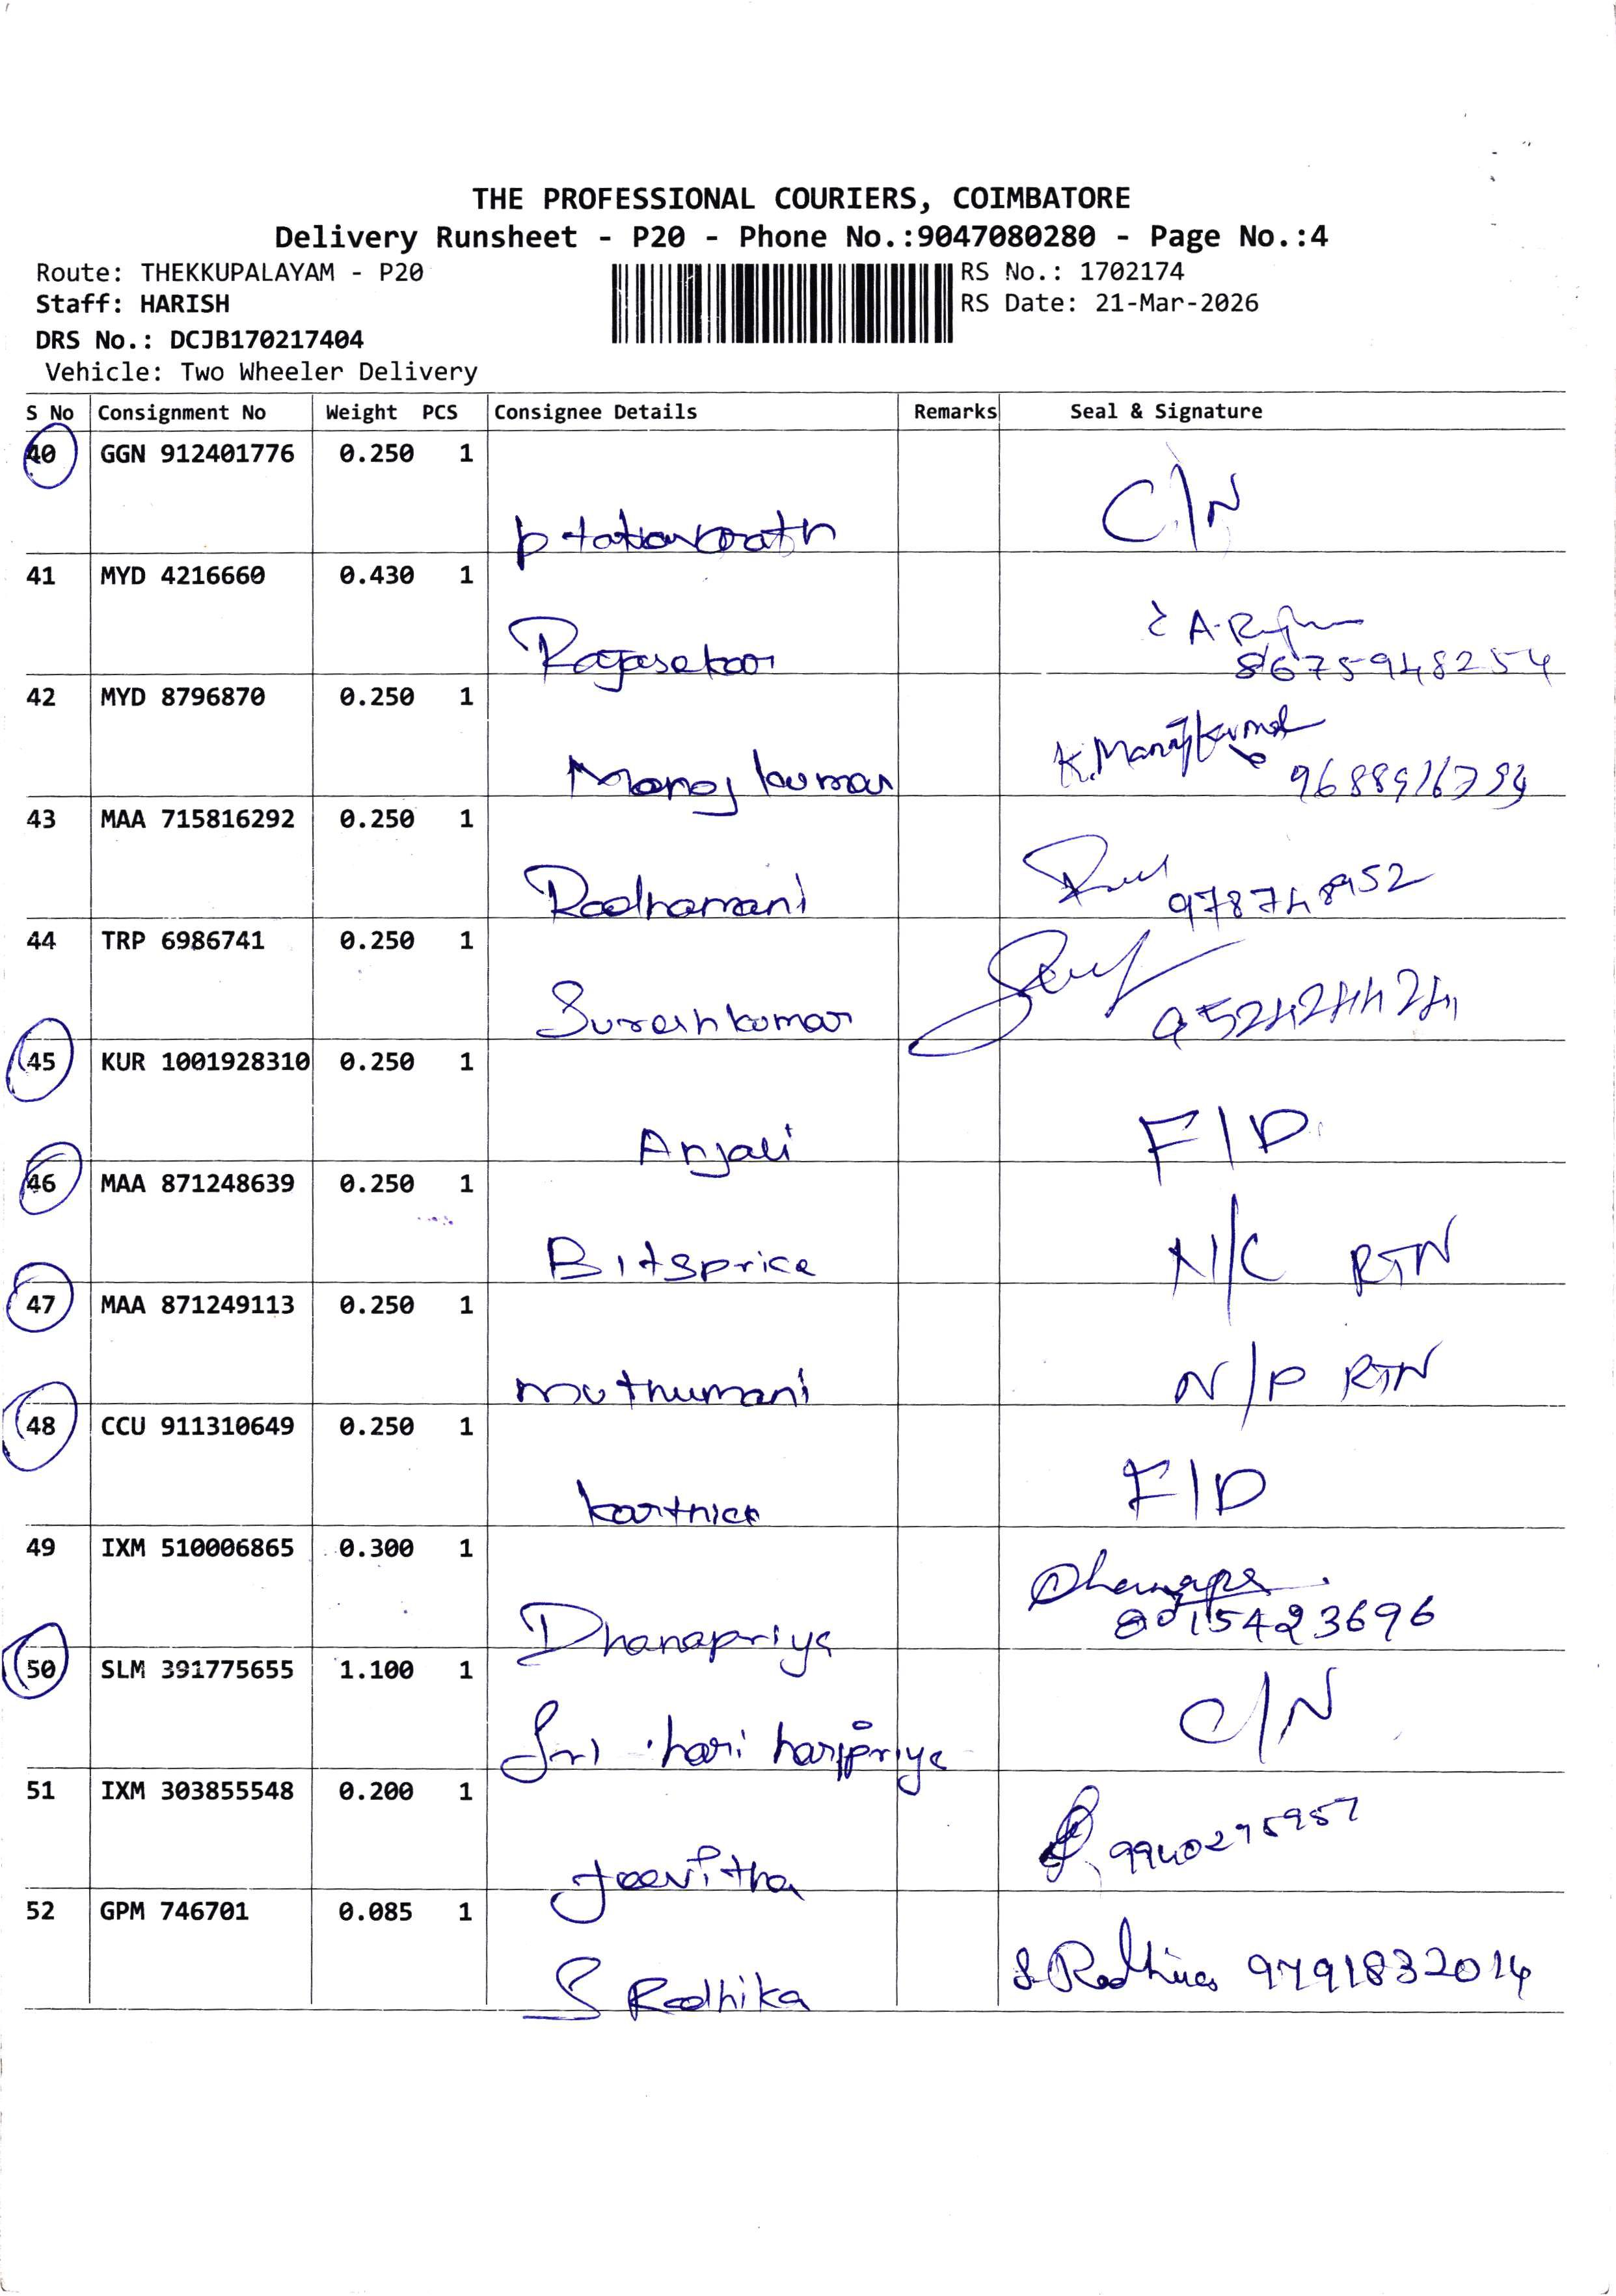 THE PROFESSIONAL COURIERS, COIMBATORE
Delivery Runsheet - P20 - Phone No.:9047080280 - Page No.:4
Route: THEKKUPALAYAM - P20
RS No.: 1702174
Staff: HARISH
RS Date: 21-Mar-2026
DRS No.: DCJB170217404
Vehicle: Two Wheeler Delivery
S No Consignment No Weight PCS Consignee Details Remarks Seal & Signature
40 GGN 912401776 0.250 1
C/N
41 MYD 4216660 0.430 1
Rajasekar
8675948254
42 MYD 8796870 0.250 1
Manoj kumar
K.Manojkumar
43 MAA 715816292 0.250 1
Radhamani
9787748952
44 TRP 6986741 0.250 1
Sureshkumar
45 KUR 1001928310 0.250 1
Anjali F/D
46 MAA 871248639 0.250 1
Bitsprice N/C RTN
47 MAA 871249113 0.250 1
muthumani N/P RTN
48 CCU 911310649 0.250 1
F/D
49 IXM 510006865 0.300 1
Dhanapriya 8015423696
50 SLM 391775655 1.100 1
Sri hari haripriya C/N
51 IXM 303855548 0.200 1
Jeevitha 9940295957
52 GPM 746701 0.085 1
S Radhika S.Radhika 9791832014